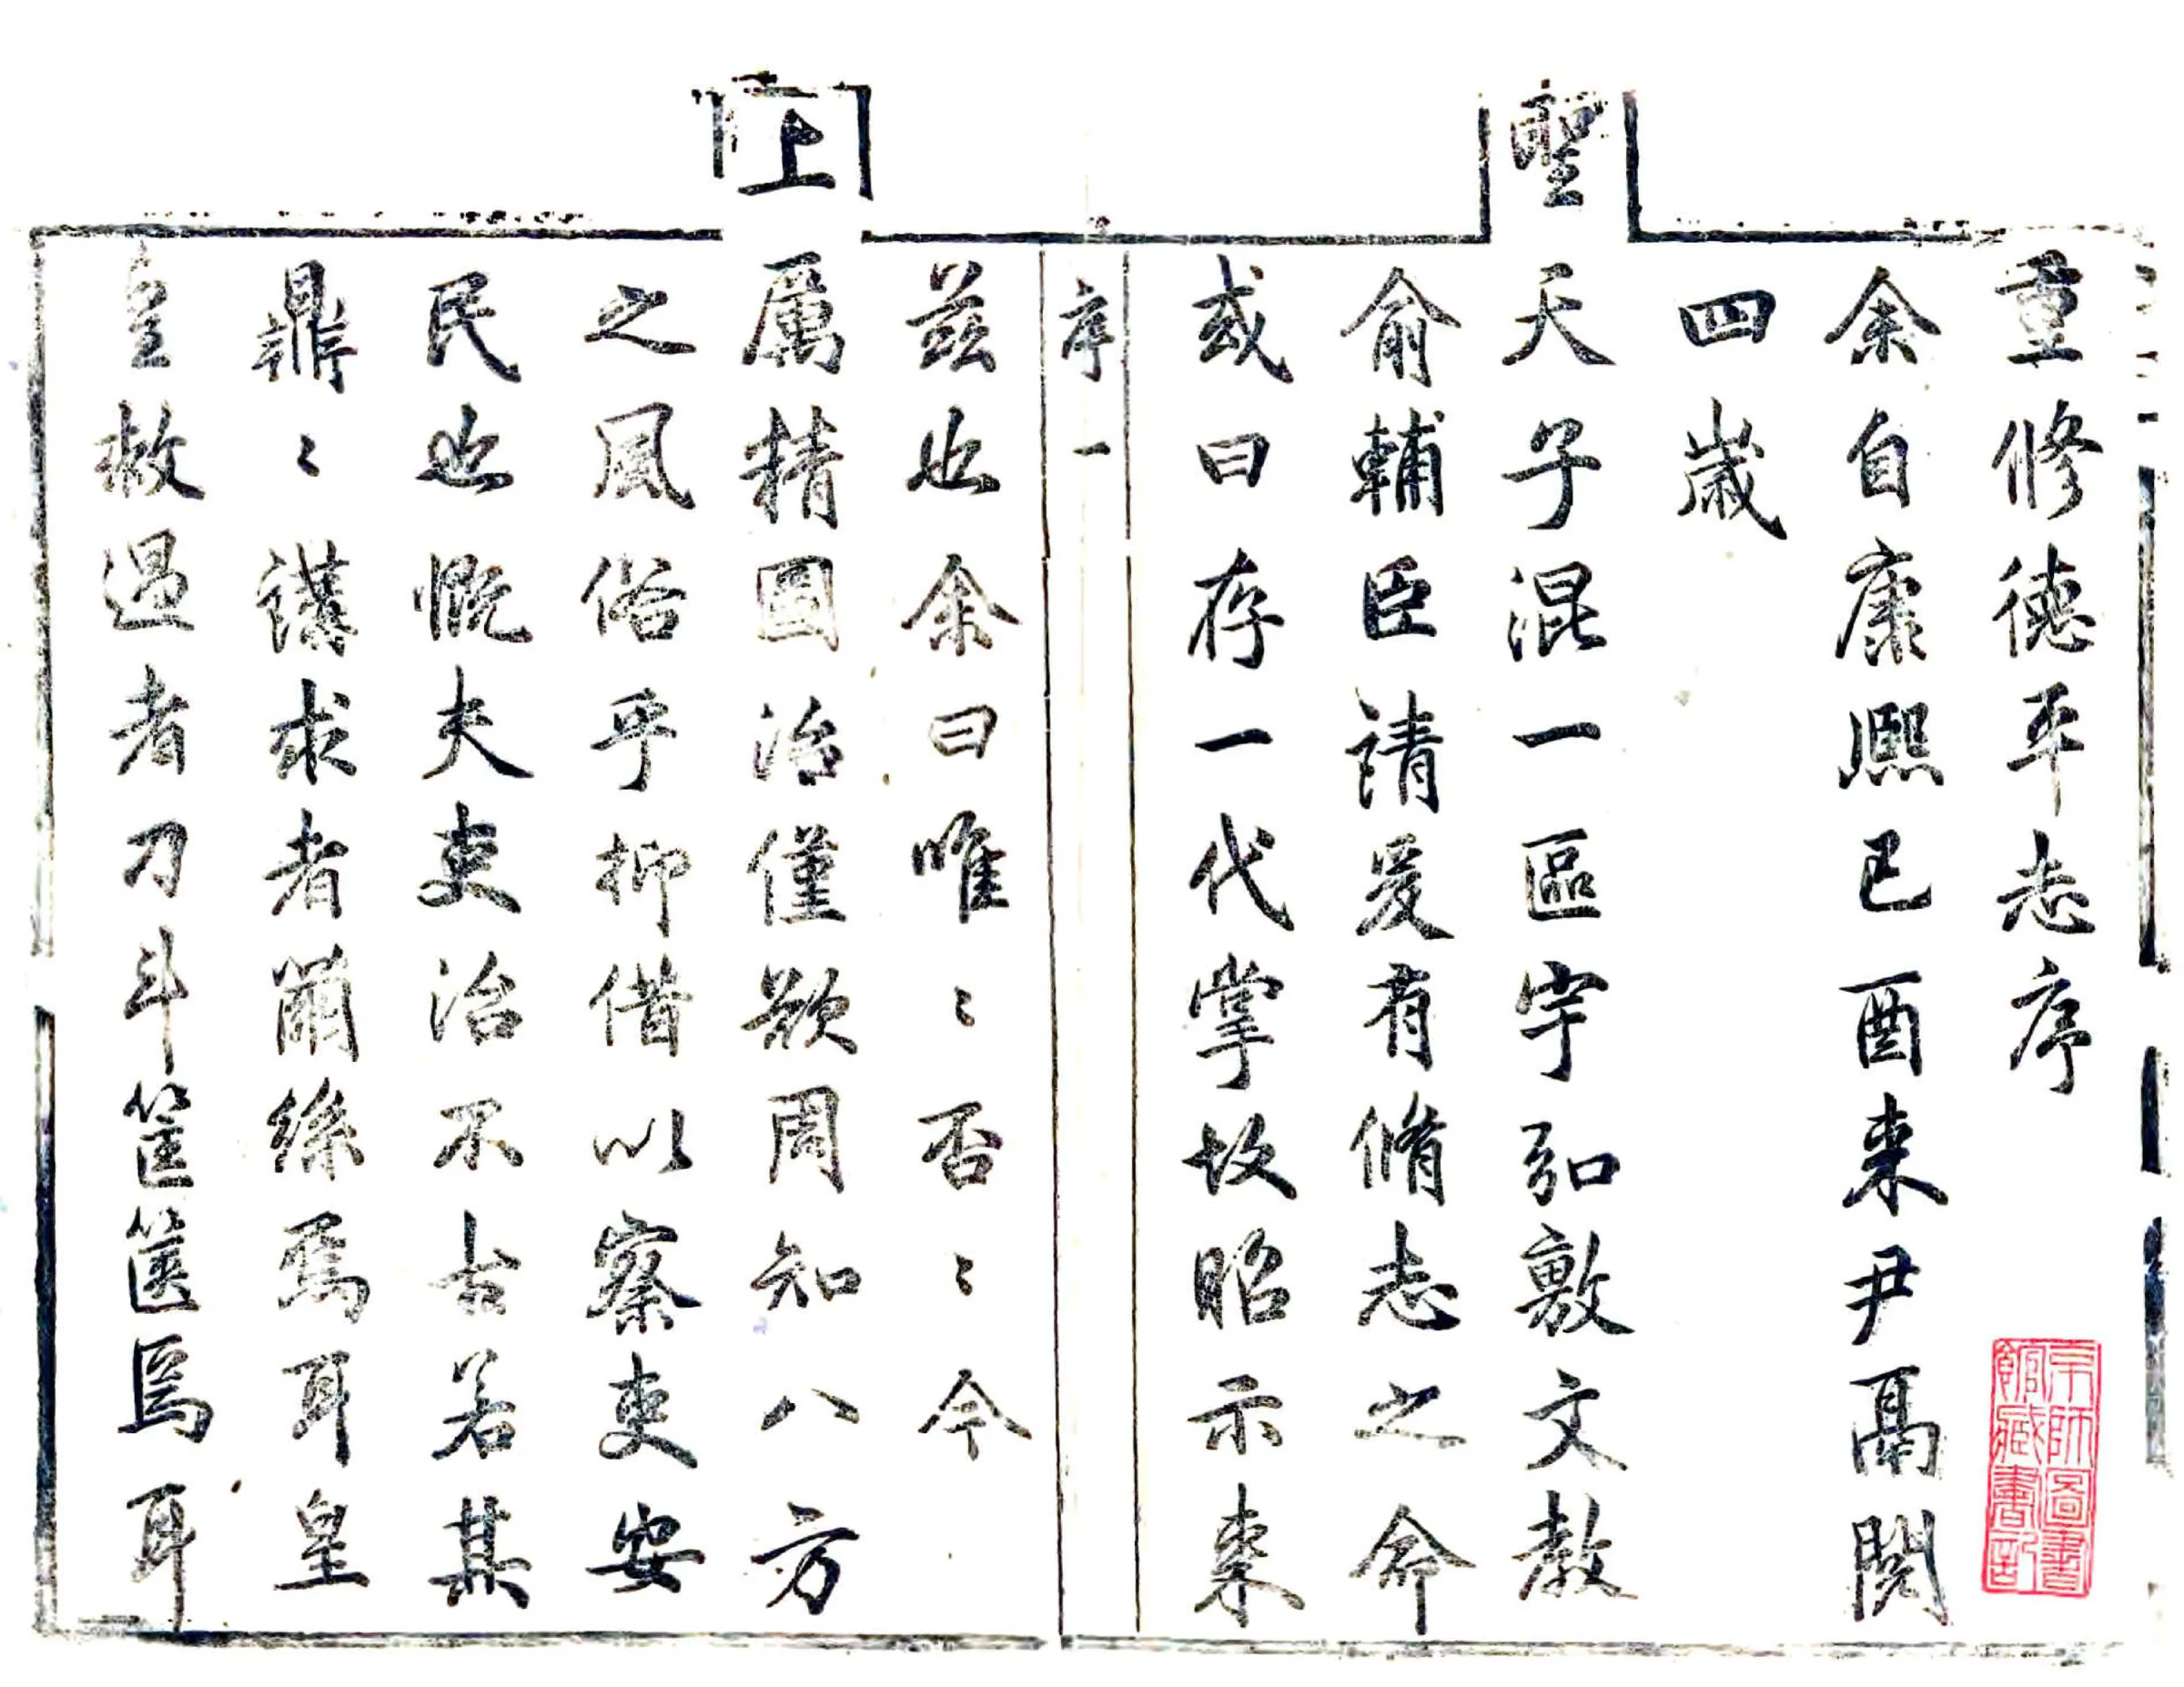 重修德平志序
余自康熈己酉来尹鬲閱
四歲
聖天子混一區宇弘敷文教
俞輔臣請爰有脩志之命
或曰存一代掌故昭示来
序一
茲也余曰唯〻否〻今
上厲精圖治僅欲周知八方
之風俗乎抑借以察吏安
民也慨夫吏治不古若其
鼎〻講求者繭絲焉耳皇
皇救過者刀斗筐篋焉耳
京師圖書
館藏書記